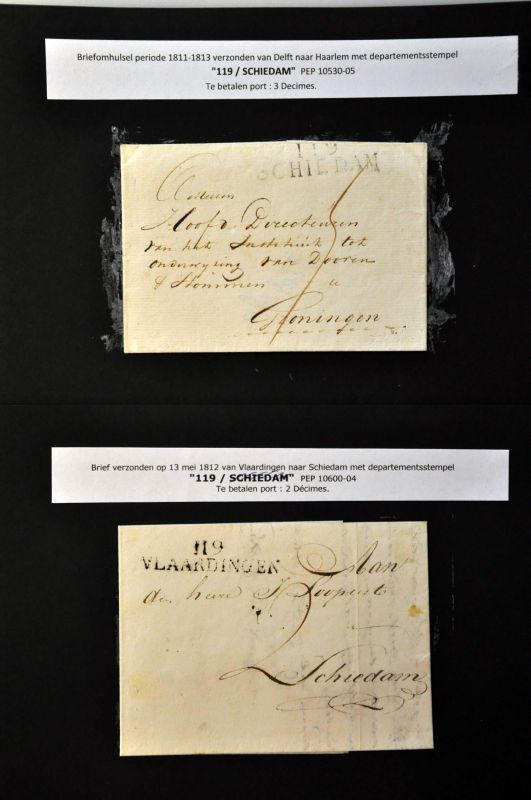 Briefomhulsel periode 1811-1813 verzonden van Delft naar Haarlem met departementsstempel
"119 / SCHIEDAM" PEP 10530-05
Te betalen port : 3 Decimes.
119
SCHIEDAM
Hoofd Directeuren
van het Instituut tot
onderwijzing van Dooven
& Stommen
Groningen
Brief verzonden op 13 mei 1812 van Vlaardingen naar Schiedam met departementsstempel
"119 / SCHIEDAM" PEP 10600-04
Te betalen port : 2 Décimes.
119
VLAARDINGEN
Aan
de heere
Schiedam